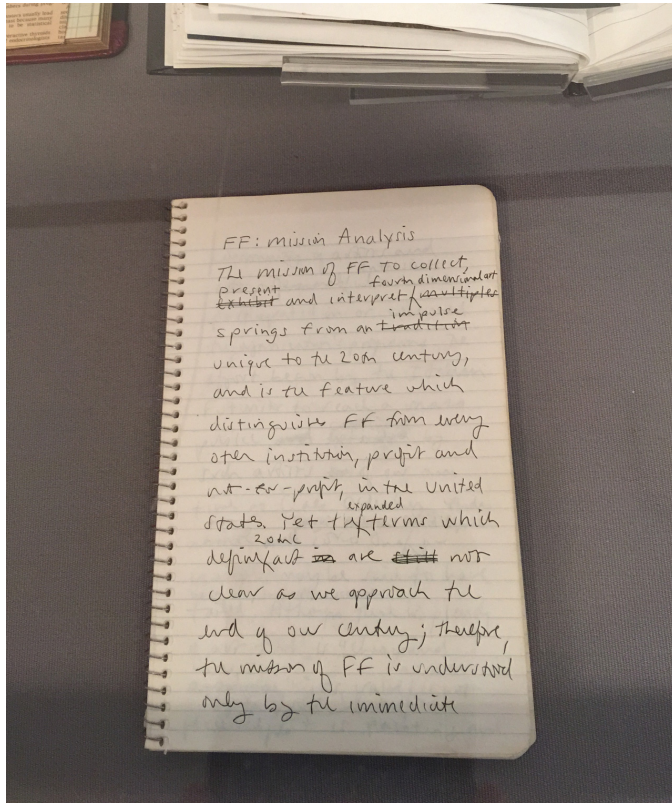 FF: Mission Analysis
The mission of FF to collect,
present fourth dimensional art
exhibit and interpret multiples
impulse
springs from an tradition
unique to the 20th century,
and is the feature which
distinguishes FF from every
other institution, profit and
not-for-profit, in the United
expanded
States. Yet the terms which
20th C
define art in are still not
clear as we approach the
end of our century; therefore,
the mission of FF is understood
only by the immediate